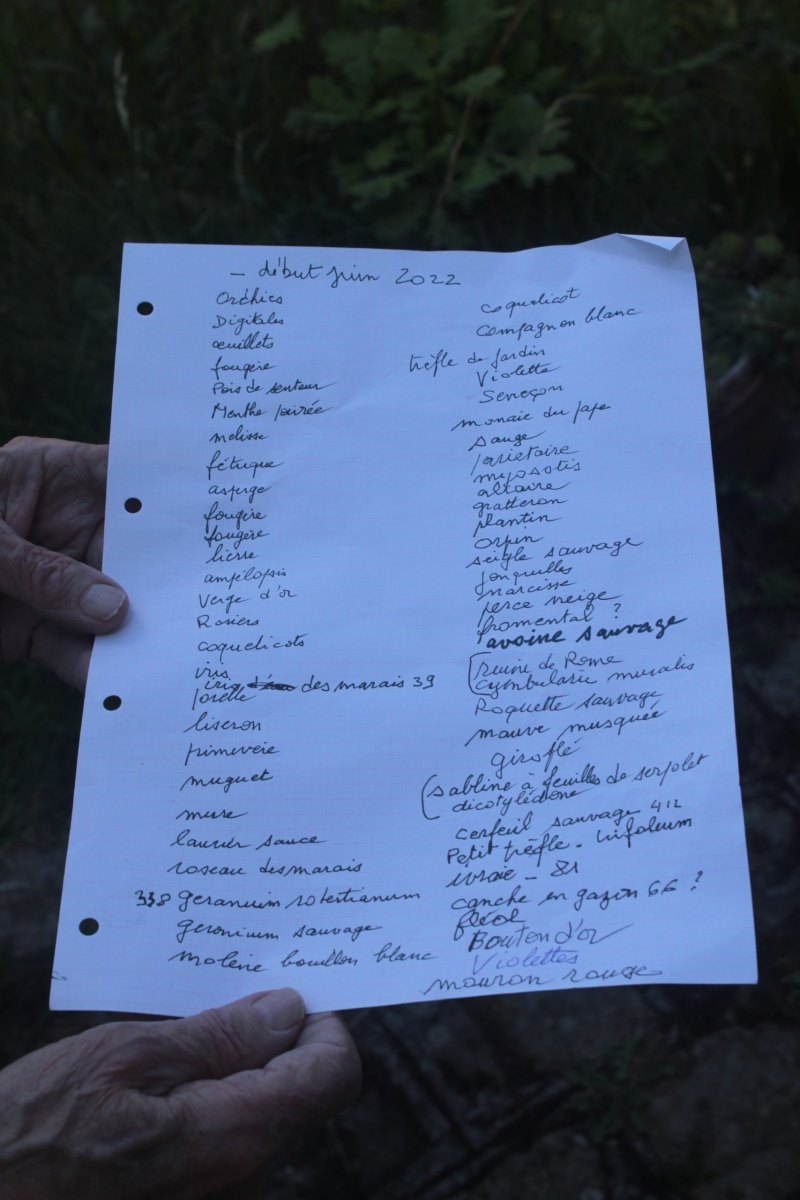 – début juin 2022
Orchies
Digitales
œuillets
fougère
Pois de senteur
Menthe poivrée
melisse
fétuque
asperge
fougère
fougère
lierre
ampélopsis
Verge d'or
Rosiers
coquelicots
iris
iris des marais 39
liseron
primevère
muguet
mure
laurier sauce
roseau des marais
338 geranium robertianum
geronium sauvage
molène bouillon blanc
coquelicot
Compagnon blanc
trèfle de jardin
Violette
Seneçon
monaie du pape
sauge
pariétaire
myosotis
altaire
gratteron
plantin
orpin
seigle sauvage
jonquilles
narcisse
perce neige
fromental ?
avoine sauvage
(ruine de Rome
cymbularie muralis
Roquette sauvage
mauve musquée
giroflé
(sabline à feuilles de serpolet
dicotylédone
cerfeuil sauvage 412
Petit trèfle. trifoleum
ivraie – 81
canche en gazon 66 ?
fléol
Bouton d'or
Violettes
mouron rouge